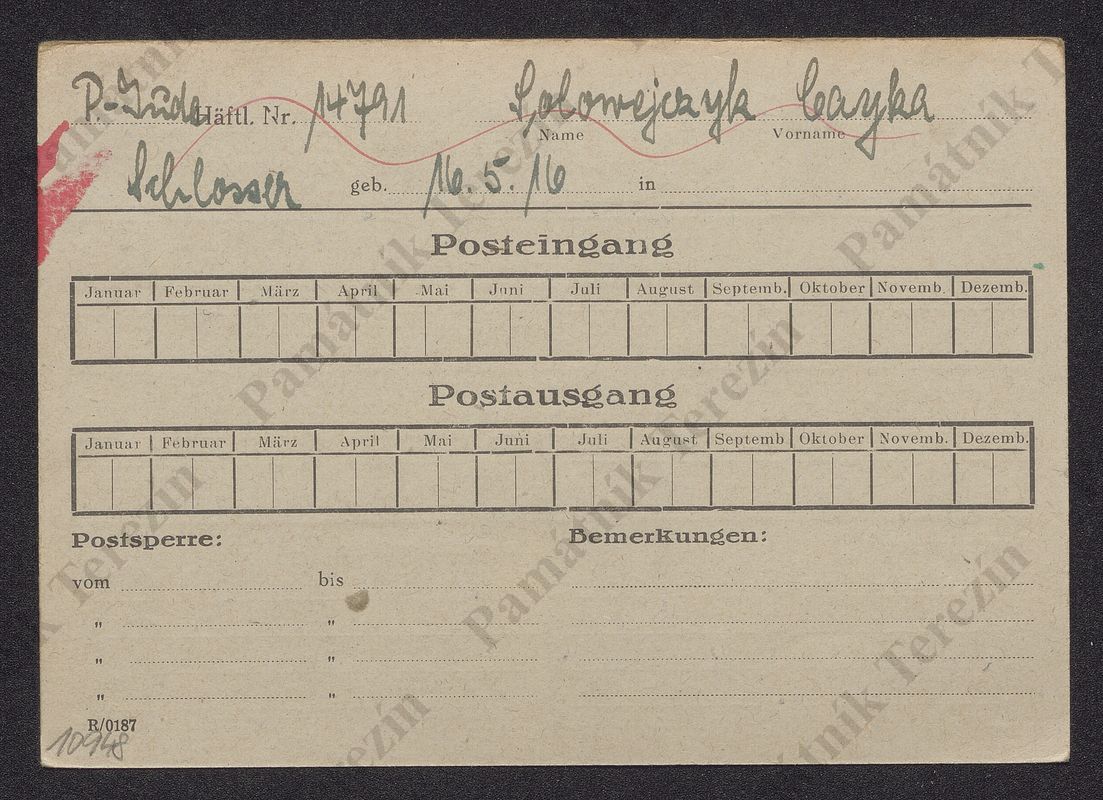 P-Jude Häftl. Nr. 14791 Solowejczyk Cayka
Name Vorname
Schlosser geb. 16.5.16 in
Posteingang
Januar Februar März April Mai Juni Juli August Septemb. Oktober Novemb. Dezemb.
Postausgang
Januar Februar März April Mai Juni Juli August Septemb Oktober Novemb. Dezemb.
Postsperre: Bemerkungen:
vom bis
" "
" "
" "
R/0187
10948
Památník Terezín